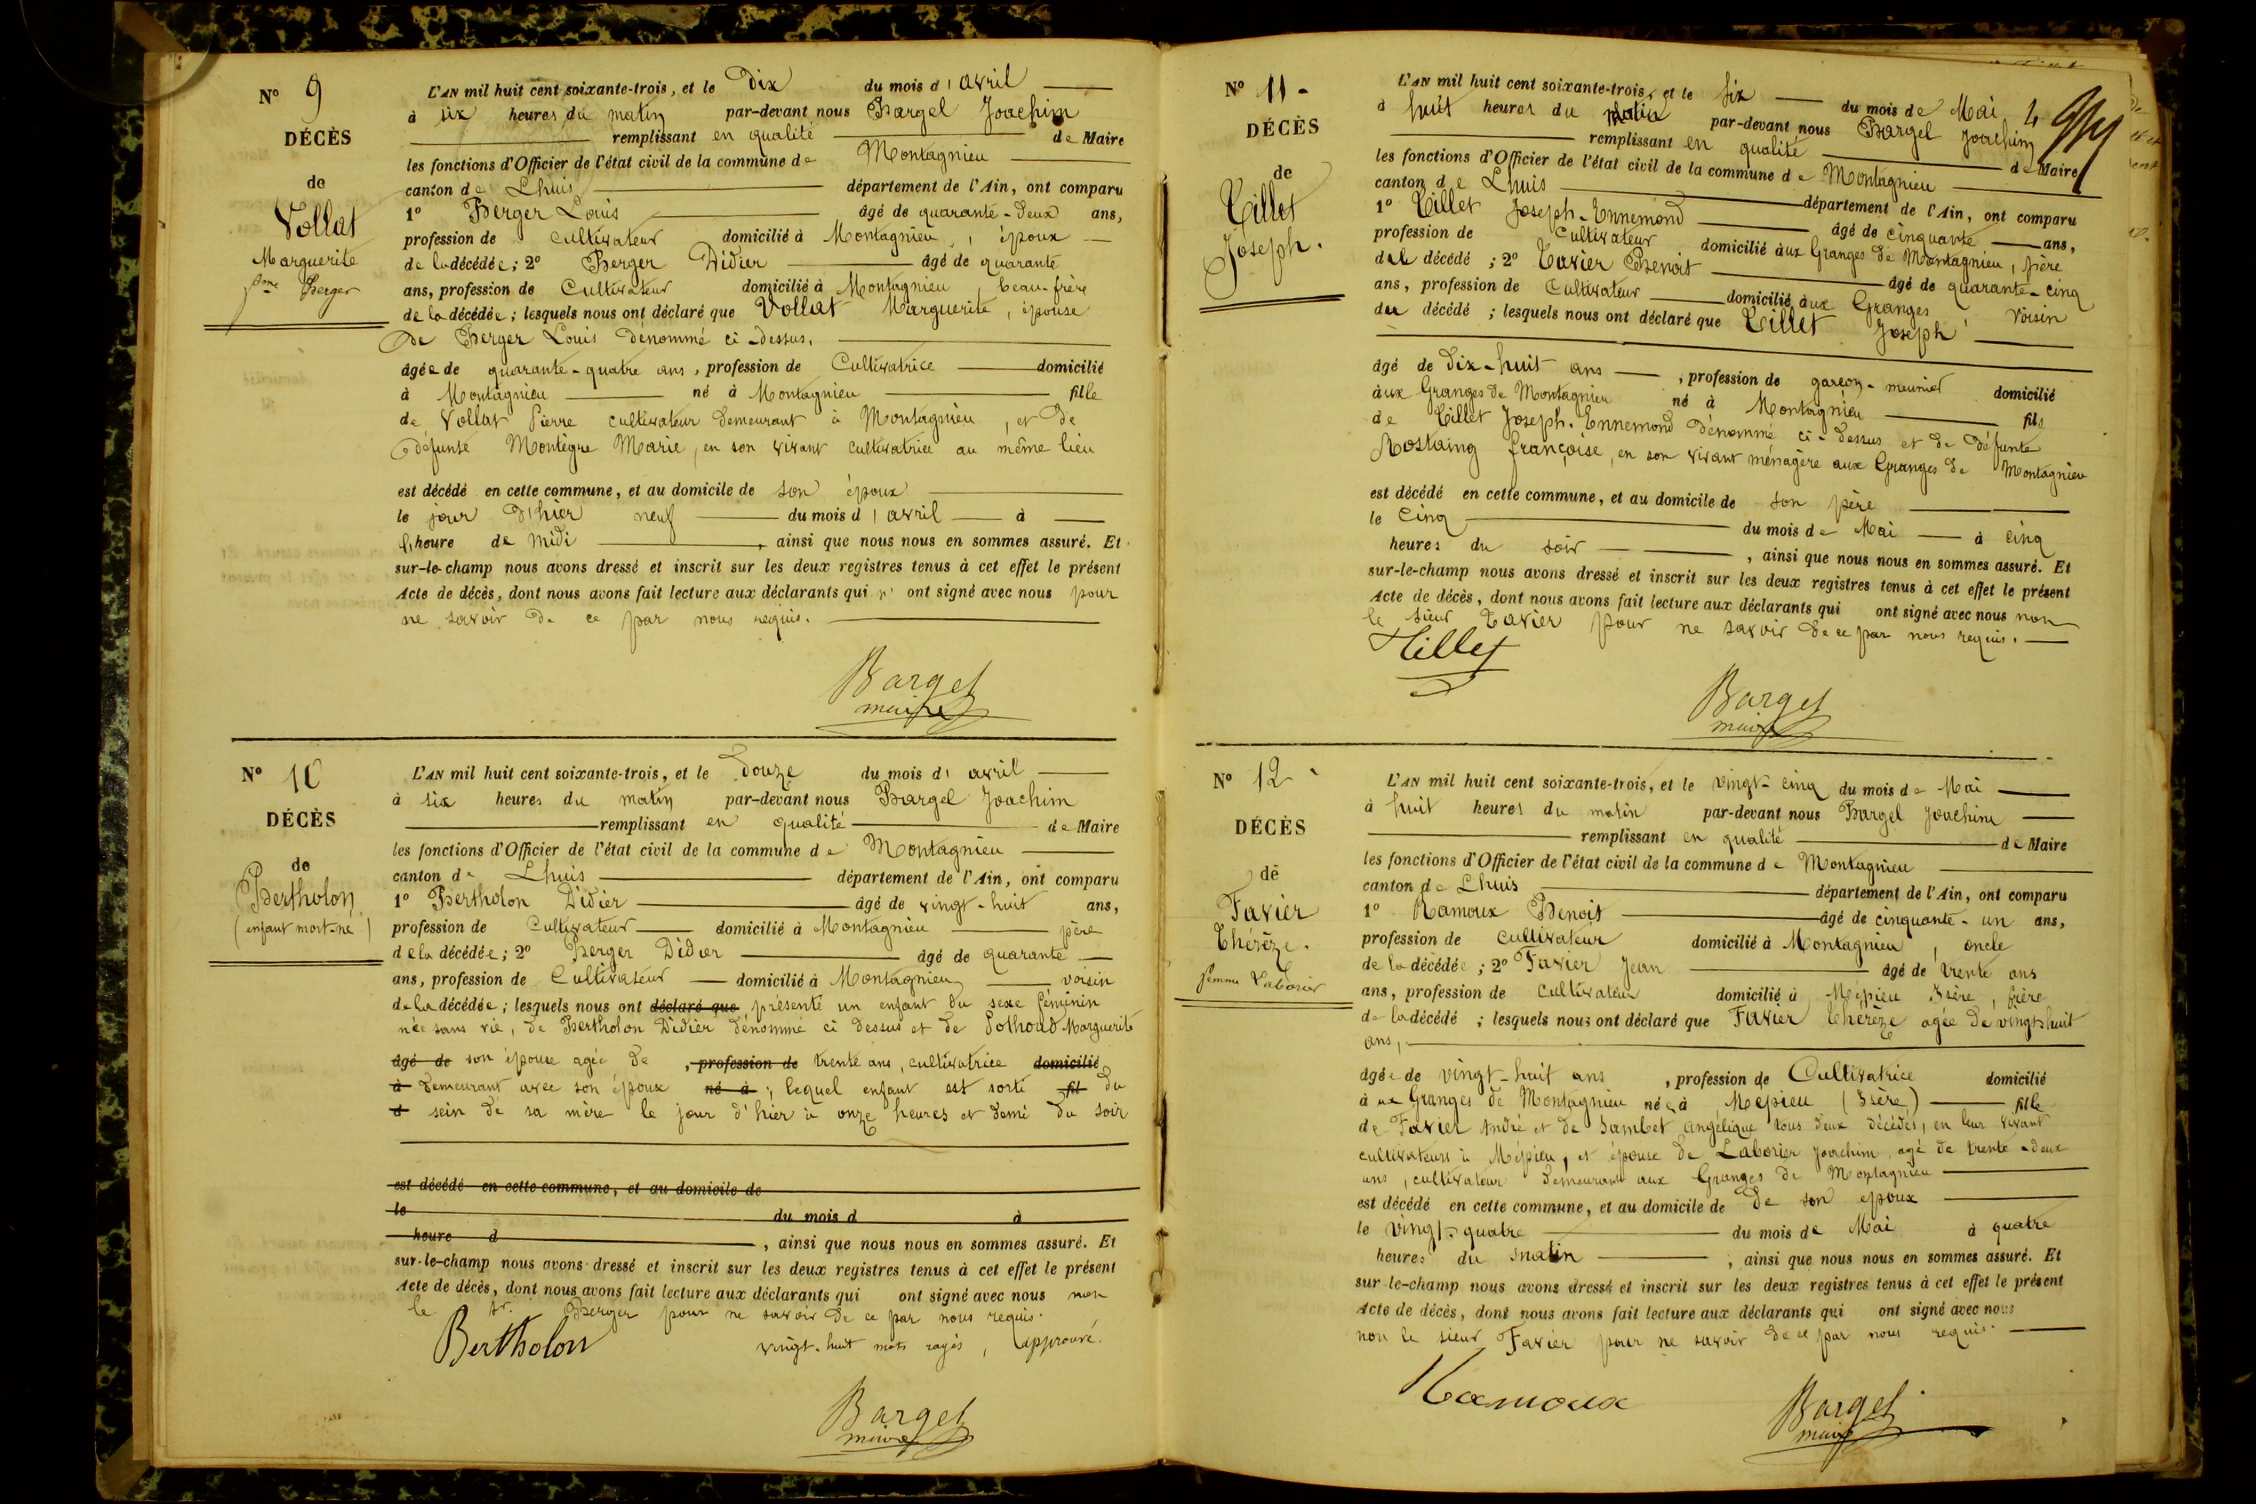 N° 9
DÉCÈS
de
Vollat
Marguerite
fme Berger
L'AN mil huit cent soixante-trois, et le Dix du mois d'avril
à six heures du matin par-devant nous Bargel Joachim
remplissant en qualité de Maire
les fonctions d'Officier de l'état civil de la commune de Montagnieu
canton de Lhuis département de l'Ain, ont comparu
1° Berger Louis âgé de quarante-deux ans,
profession de cultivateur domicilié à Montagnieu, époux
de la décédée; 2° Berger Didier âgé de quarante
ans, profession de Cultivateur domicilié à Montagnieu, beau-frère
de la décédée; lesquels nous ont déclaré que Vollat Marguerite, épouse
de Berger Louis dénommé ci-dessus,
âgée de quarante-quatre ans, profession de Cultivatrice domicilié
à Montagnieu né à Montagnieu fille
de Vollat Pierre cultivateur demeurant à Montagnieu, et de
défunte Montègre Marie, en son vivant cultivatrice au même lieu
est décédé en cette commune, et au domicile de son époux
le jour d'hier neuf du mois d'avril à
l'heure de midi, ainsi que nous nous en sommes assuré. Et
sur-le-champ nous avons dressé et inscrit sur les deux registres tenus à cet effet le présent
Acte de décès, dont nous avons fait lecture aux déclarants qui n'ont signé avec nous pour
ne savoir de ce par nous requis.
Bargel
maire
N° 10
DÉCÈS
de
Bertholon
(enfant mort-né)
L'AN mil huit cent soixante-trois, et le Douze du mois d'avril
à six heures du matin par-devant nous Bargel Joachim
remplissant en qualité de Maire
les fonctions d'Officier de l'état civil de la commune de Montagnieu
canton de Lhuis département de l'Ain, ont comparu
1° Bertholon Didier âgé de vingt-huit ans,
profession de Cultivateur domicilié à Montagnieu père
de la décédée; 2° Berger Didier âgé de quarante
ans, profession de Cultivateur domicilié à Montagnieu voisin
de la décédée; lesquels nous ont déclaré que présenté un enfant du sexe féminin
née sans vie, de Bertholon Didier dénommé ci dessus et de Pothoud Marguerite
âgé de son épouse agée de, profession de trente ans, cultivatrice domicilié
à demeurant avec son époux né à; lequel enfant est sorti fil du
d sein de sa mère le jour d'hier à onze heures et demi du soir
est décédé en cette commune, et au domicile de
le du mois d à
heure d, ainsi que nous nous en sommes assuré. Et
sur-le-champ nous avons dressé et inscrit sur les deux registres tenus à cet effet le présent
Acte de décès, dont nous avons fait lecture aux déclarants qui ont signé avec nous non
le sr. Berger pour ne savoir de ce par nous requis.
Bertholon vingt-huit mots rayés, approuvé.
Bargel
maire
N° 11
DÉCÈS
de
Tillet
Joseph.
L'AN mil huit cent soixante-trois, et le Six du mois de Mai
à huit heures du matin par-devant nous Bargel Joachim
remplissant en qualité de Maire
les fonctions d'Officier de l'état civil de la commune de Montagnieu
canton de Lhuis département de l'Ain, ont comparu
1° Tillet Joseph-Ennemond âgé de cinquante ans,
profession de Cultivateur domicilié aux Granges de Montagnieu, père
del décédé; 2° Tavier Benoit âgé de quarante-cinq
ans, profession de Cultivateur domicilié aux Granges voisin
du décédé; lesquels nous ont déclaré que Tillet Joseph
âgé de Dix-huit ans, profession de garçon-meunier domicilié
aux Granges de Montagnieu né à Montagnieu fils
de Tillet Joseph-Ennemond dénommé ci-dessus et de défunte
Rostaing françoise, en son vivant ménagère aux Granges de Montagnieu
est décédé en cette commune, et au domicile de son père
le Cinq du mois de Mai à cinq
heures du soir, ainsi que nous nous en sommes assuré. Et
sur-le-champ nous avons dressé et inscrit sur les deux registres tenus à cet effet le présent
Acte de décès, dont nous avons fait lecture aux déclarants qui ont signé avec nous non
le sieur Tavier pour ne savoir de ce par nous requis.
Tillet
Bargel
maire
N° 12
DÉCÈS
de
Favier
Thérèze.
femme Laborier
L'AN mil huit cent soixante-trois, et le vingt-cinq du mois de Mai
à huit heures du matin par-devant nous Bargel Joachim
remplissant en qualité de Maire
les fonctions d'Officier de l'état civil de la commune de Montagnieu
canton de Lhuis département de l'Ain, ont comparu
1° Ramoux Benoit âgé de cinquante-un ans,
profession de cultivateur domicilié à Montagnieu, oncle
de la décédée; 2° Favier Jean âgé de trente ans
ans, profession de cultivateur domicilié à Mépieu Isère, frère
de la décédé; lesquels nous ont déclaré que Favier Thérèze agée de vingt-huit
ans,
âgée de vingt-huit ans, profession de Cultivatrice domicilié
à ux Granges de Montagnieu née à Mepieu (Isère) fille
de Favier André et de Sambet angélique tous deux décédés, en leur vivant
cultivateurs à Mépieu, et épouse de Laborier Joachim, agé de trente-deux
ans, cultivateur demeurant aux Granges de Montagnieu
est décédé en cette commune, et au domicile de de son epoux
le vingt-quatre du mois de Mai à quatre
heures du matin, ainsi que nous nous en sommes assuré. Et
sur-le-champ nous avons dressé et inscrit sur les deux registres tenus à cet effet le présent
Acte de décès, dont nous avons fait lecture aux déclarants qui ont signé avec nous
non le sieur Favier pour ne savoir de ce par nous requis.
Ramoux
Bargel
maire